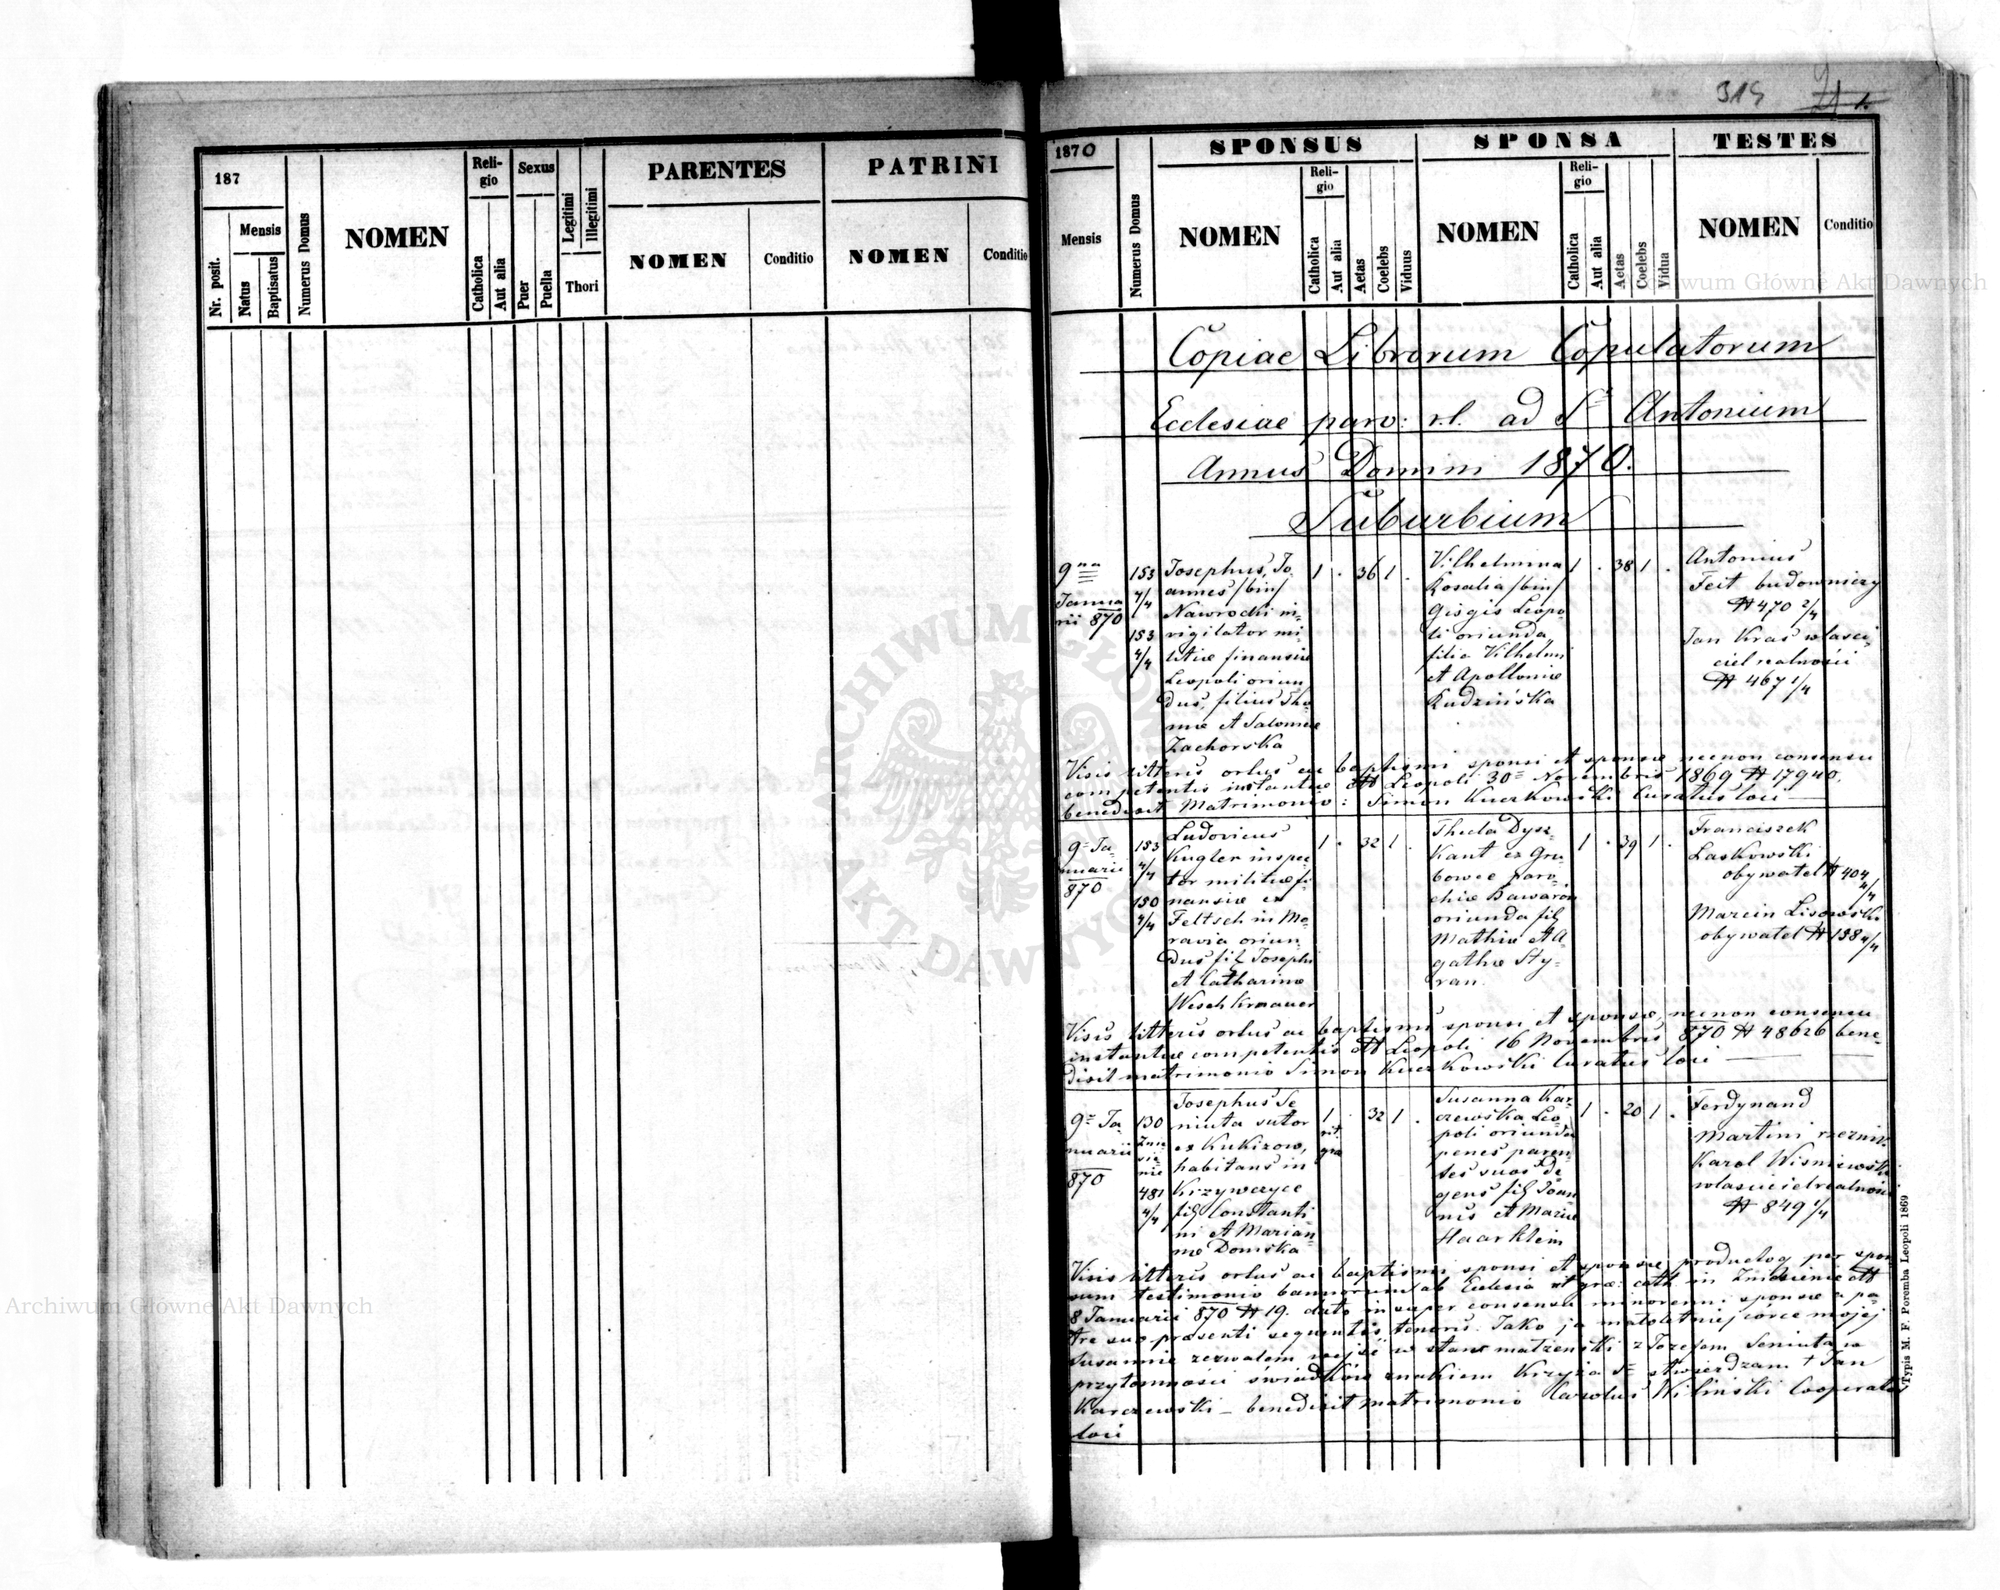 315
187
Nr. posit.
Mensis
Natus
Baptisatus
Numerus Domus
NOMEN
Reli-
gio
Catholica
Aut alia
Sexus
Puer
Puella
Legitimi
Illegitimi
Thori
PARENTES
NOMEN
Conditio
PATRINI
NOMEN
Conditio
1870
Mensis
Numerus Domus
SPONSUS
NOMEN
Reli-
gio
Catholica
Aut alia
Aetas
Coelebs
Viduus
SPONSA
NOMEN
Reli-
gio
Catholica
Aut alia
Aetas
Coelebs
Vidua
TESTES
NOMEN
Conditio
Copiae Librorum Copulatorum
Ecclesiae paro: r.l. ad St Antonium
Annus Domini 1870.
Suburbium
9na
Janua
rii 870
153
4/4
153
4/4
Josephus, Jo
annes /bin/
Nawrocki in-
vigilator mi-
litiae finansiae
Leopoli oriun
dus, filius Tho-
mae et Salomeae
Zachorska
1 . 36 1 .
Vilhelmina
Rosalia /bin/
Gisgis Leopo-
li oriunda
filia Vilhelmi
et Apolloniae
Rudzińska
1 . 38 1 .
Antonius
Feit budowniczy
N 470 2/4
Jan Kras właści-
ciel realności
N 467 1/4
Visis litteris ortus ac baptismi sponsi et sponsae necnon consensu
competentis instantiae dtt Leopoli 30= Novembris 1869 N 17940.
benedixit Matrimonio: Simon Kuczkowski Curatus loci
9= Ja-
nuarii
870
153
4/4
150
4/4
Ludovicus
Kugler inspec-
tor militiae fi-
nansiae ex
Feltsch in Mo-
ravia oriun-
dus fil Josephi
et Catharinae
Weschkrnauer
1 . 32 1 .
Thecla Dysz-
kant ex Gru-
bowce paro-
chiae Kawaron
oriunda fil
Mathiae et A-
gathae Sty-
ran
1 . 39 1 .
Franciszek
Laskowski
obywatel N 404
4/4
Marcin Lisowski
obywatel N 138 4/4
Visis litteris ortus ac baptismi sponsi et sponsae, necnon consensu
instantiae competentis dtt Leopoli 16 Novembris 870 N 48626 bene-
dixit matrimonio Simon Kuczkowski Curatus loci
9= Ja-
nuarii
870
130
Znie-
sie-
nie
481
4/4
Josephus Se
niuta sutor
ex Kukizow,
habitans in
Krzywczyce
fil Constanti-
ni et Marian-
nae Domska
1 . 32 1 .
rit.
gra
Susanna Kar-
czewska Leo-
poli oriunda
penes paren-
tes suos de-
gens fil Joan
nis et Mariae
Haarklem
1 . 20 1 .
Ferdynand
Martini rzeznik
Karol Wisniewski
właściciel realności
N 849 1/4
Visis litteris ortus ac baptismi sponsi et sponsae productoq per spon
sum testimonio bannorum ab Eclesia rt grae: cath in Zniesienie dtt
8 Januarii 870 N 19. dato insuper consensu minorenni sponsae a pa-
tre suo praesenti sequentis tenoris. Jako ja małoletniej córce mojej
Susannie zezwalem wejść w stan małżeński z Jozefem Seniuta w
przytomności świadków znakiem Krzyża S= stwierdzam + Jan
Karczewski – benedixit matrimonio Carolus Wiliński Cooperator
loci
Typis M. F. Poremba Leopoli 1869.
Archiwum Główne Akt Dawnych
Archiwum Główne Akt Dawnych
ARCHIWUM GŁÓWNE
AKT DAWNYCH